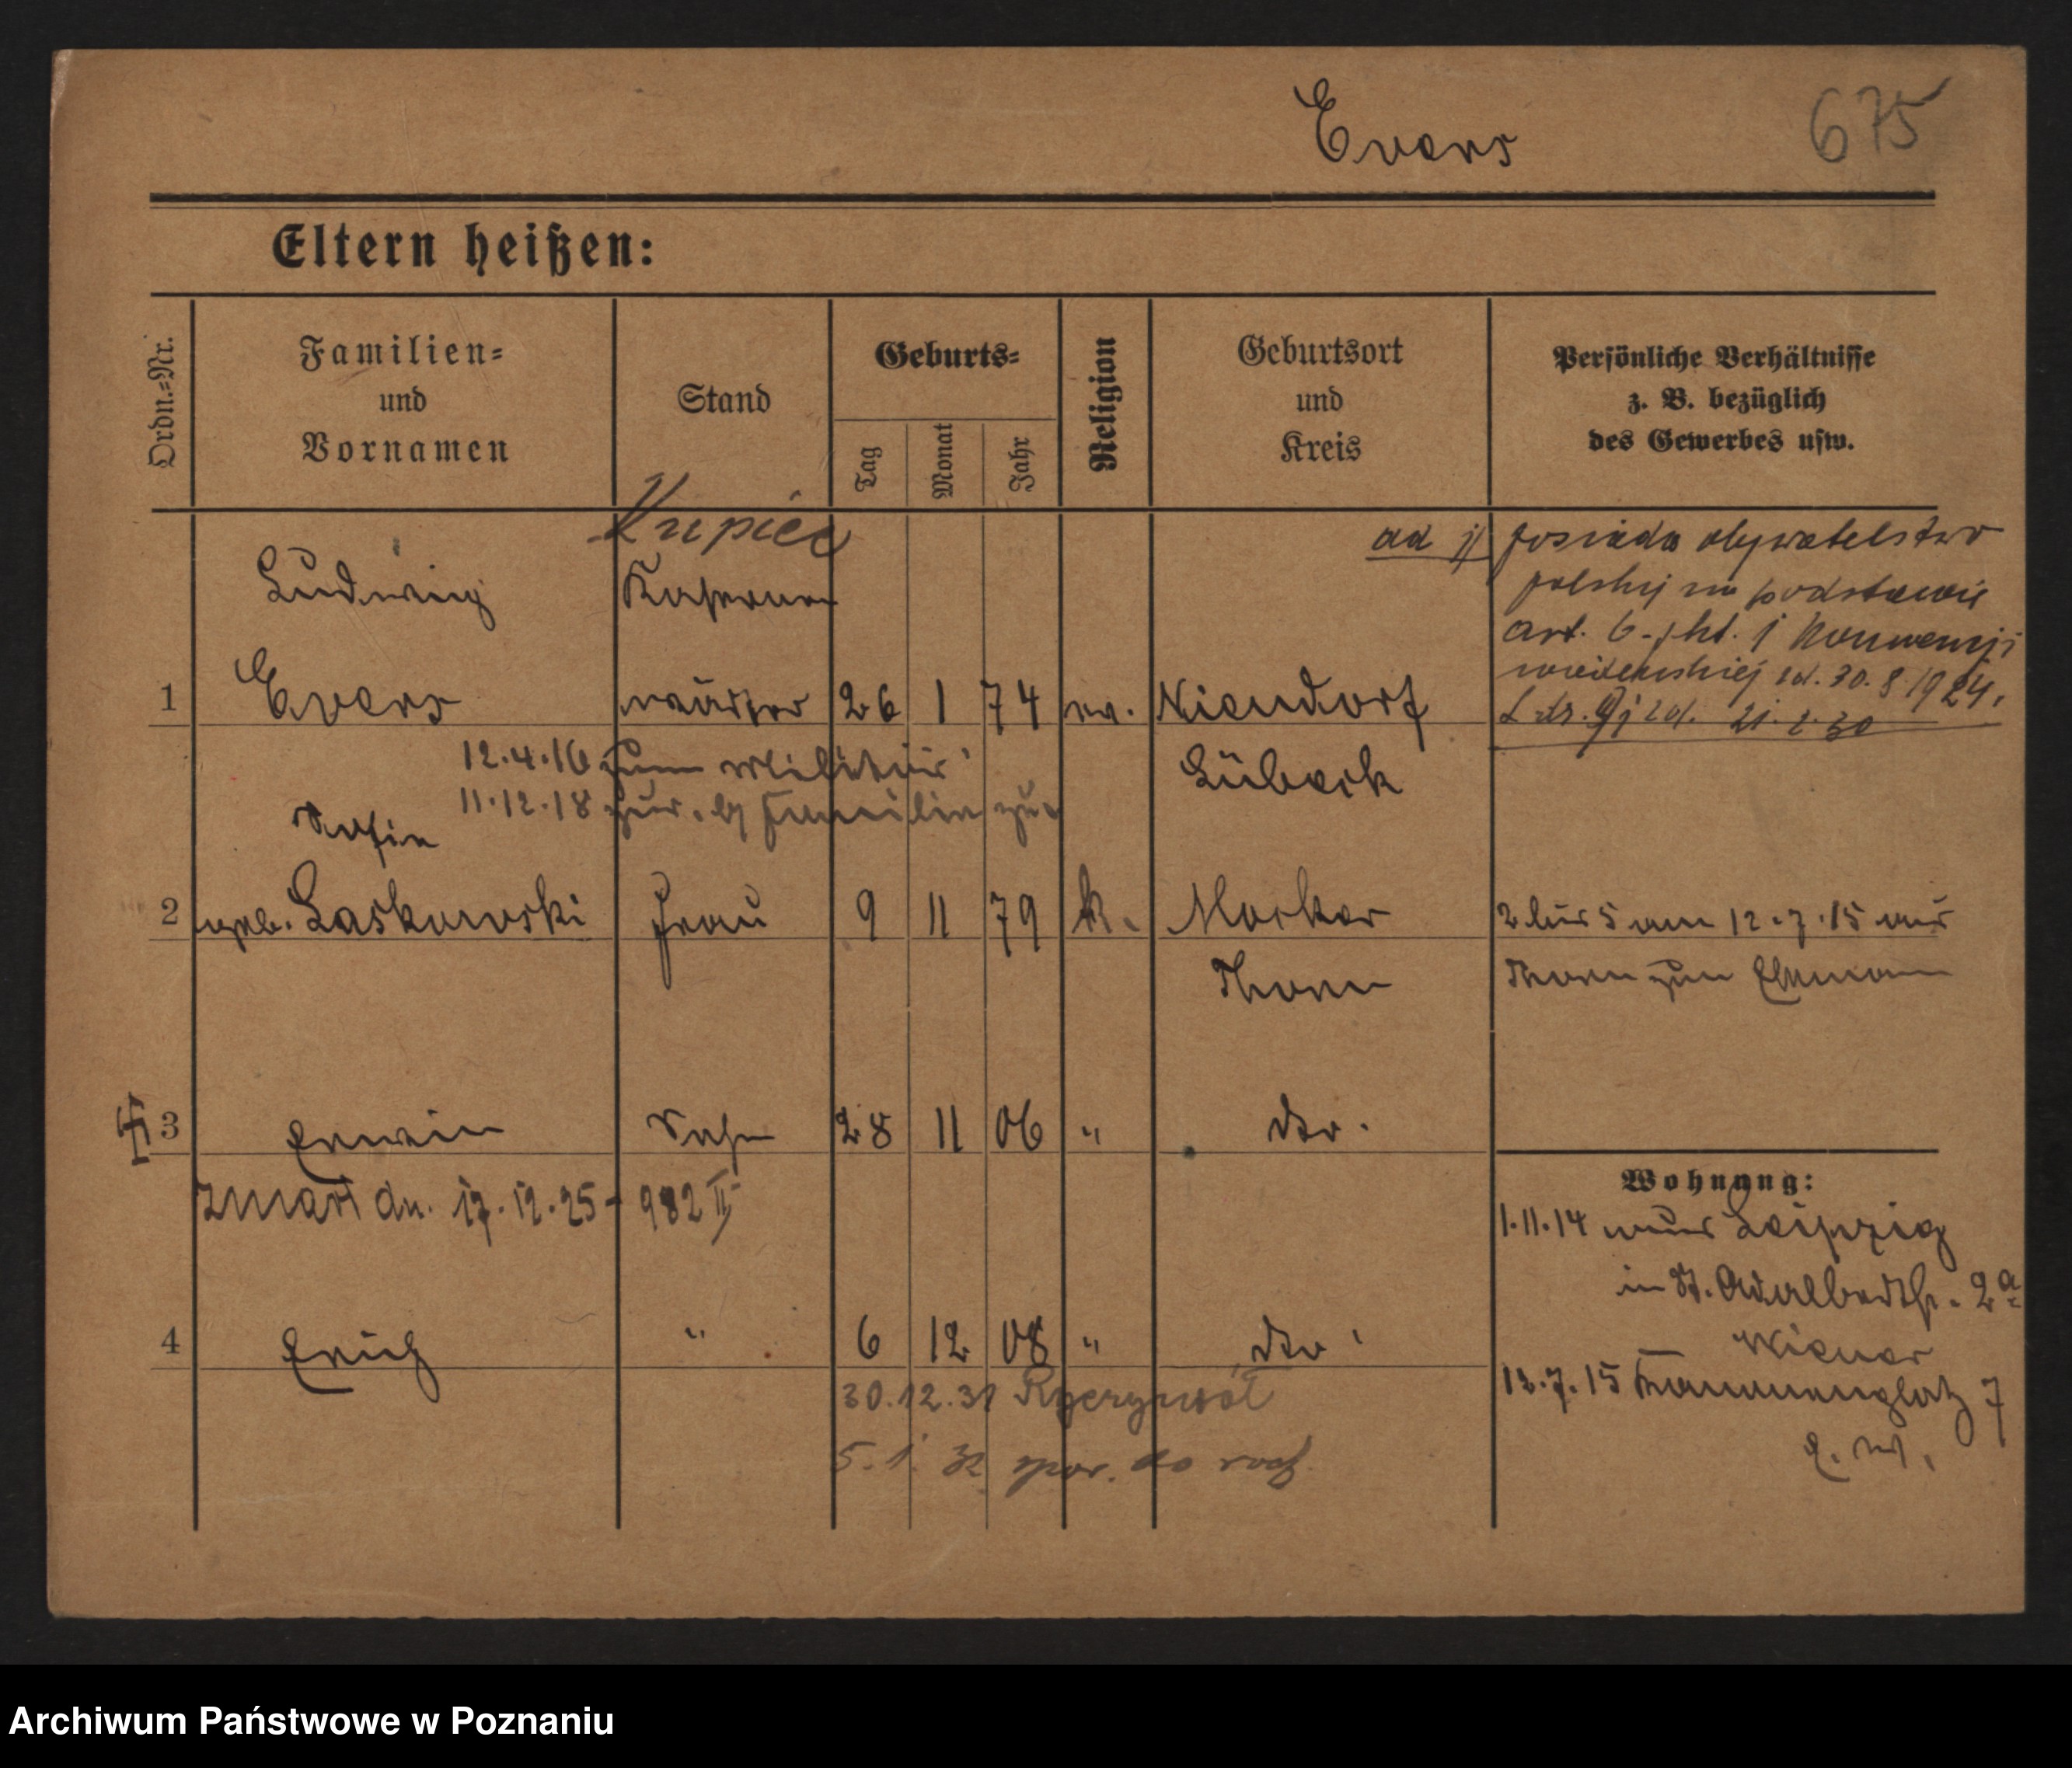 Evers 675
Eltern heißen:
Ordn.=Nr.
Familien=
und
Vornamen
Stand
Geburts=
Tag
Monat
Jahr
Religion
Geburtsort
und
Kreis
Persönliche Verhältnisse
z. B. bezüglich
des Gewerbes usw.
Kupiec
Ludwig Kasernen
1 Evers wärter 26 1 74 ev. Niendorf
Lübeck
ad 1/ posiada obywatelstwo
polskij na podstawie
art. 6 pkt. 1 Konwencji
wiedenskiej zd. 30.8.1924.
zd. 21.2.30
12.4.16 zum Militär
11.12.18 zur. Familie
Sofie
2 geb. Laskowski Frau 9 11 79 k. Mocker
Thorn
2 bis 5 am 12.7.15 aus
Thorn zum Ehemann
3 Erwin Sohn 28 11 06 " dto.
zmarł dn. 17.12.25 - 982 II
4 Erich " 6 12 08 " dto
30.12.31 Ryczywół
5.1.32 do
Wohnung:
1.11.14 aus Leipzig
in St. Adalbertstr. 2a
Wiener
12.7.15 Tannenplatz 7